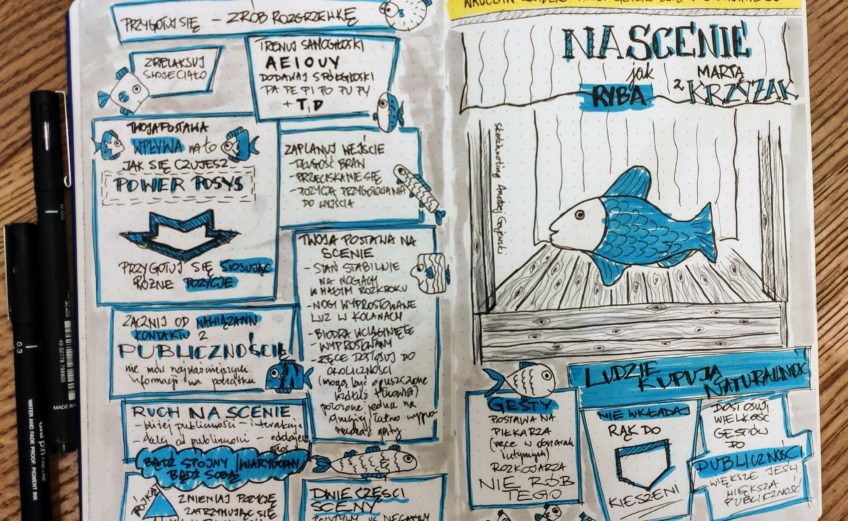 PRZYGOTUJ SIĘ – ZRÓB ROZGRZEWKĘ
ZRELAKSUJ
SWOJE CIAŁO
TRENUJ SAMOGŁOSKI
AEIOUY
DODAWAJ SPÓŁGŁOSKI
PA PE PI PO PU PY
+ T, D
TWOJA POSTAWA
WPŁYWA na to
JAK SIĘ CZUJESZ
POWER POSYS
PRZYGOTUJ SIĘ STOSUJĄC
RÓŻNE POZYCJE
ZAPLANUJ WEJŚCIE
- DŁUGOŚĆ BRAW
- PRZECISKANIE SIĘ
- POZYCJA PRZYGOTOWANA
DO WYJŚCIA
TWOJA POSTAWA NA
SCENIE
- STAŃ STABILNIE
NA NOGACH
W MAŁYM ROZKROKU
- NOGI WYPROSTOWANE
LUZ W KOLANACH
- BIODRA WCIĄGNIĘTE
- WYPROSTOWANY
- RĘCE DOSTOSUJ DO
OKOLICZNOŚCI
(mogą być opuszczone
wzdłuż tułowia)
położone jedna na
drugiej, łatwo
ZACZNIJ OD NAWIĄZANIA
KONTAKTU Z
PUBLICZNOŚCIĄ
nie mów najważniejszych
informacji na początku
RUCH NA SCENIE
- bliżej publiczności - interakcja
- dalej od publiczności
BĄDŹ SPÓJNY WIARYGODNY
BĄDŹ SOBĄ
ZMIENIAJ POZYCJĘ
ZATRZYMUJĄC SIĘ
DWIE CZĘŚCI
SCENY
POZYTYWY VS NEGATYWY
NA SCENIE
jak
RYBA
z MARTĄ
KRZYŻAK
Sketchnoting Andrzej Gryżewski
LUDZIE KUPUJĄ
NATURALNOŚĆ
GESTY
POSTAWA NA
PIŁKARZA
(ręce w obszarach
intymnych)
ROZKOJARZA
NIE RÓB
TEGO
NIE WKŁADAJ
RĄK DO
KIESZENI
DOSTOSUJ
WIELKOŚĆ
GESTÓW
DO
PUBLICZNOŚCI
WIĘKSZE JEŚLI
WIĘKSZA
PUBLICZNOŚĆ
0.3
uni PIN
WATER AND FADE PROOF PIGMENT INK